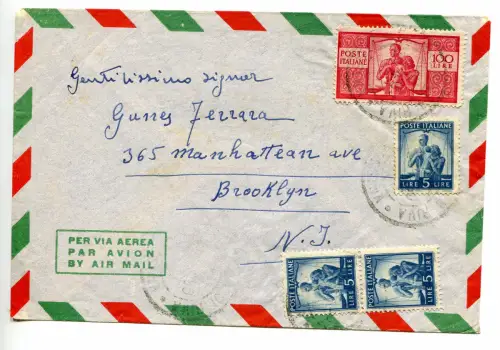 Gentilissimo signor
Gunes Ferrara
365 manhattean ave
Brooklyn
N. J.
PER VIA AEREA
PAR AVION
BY AIR MAIL
POSTE ITALIANE
100 LIRE
POSTE ITALIANE
LIRE 5 LIRE
POSTE ITALIANE
LIRE 5 LIRE
POSTE ITALIANE
LIRE 5 LIRE